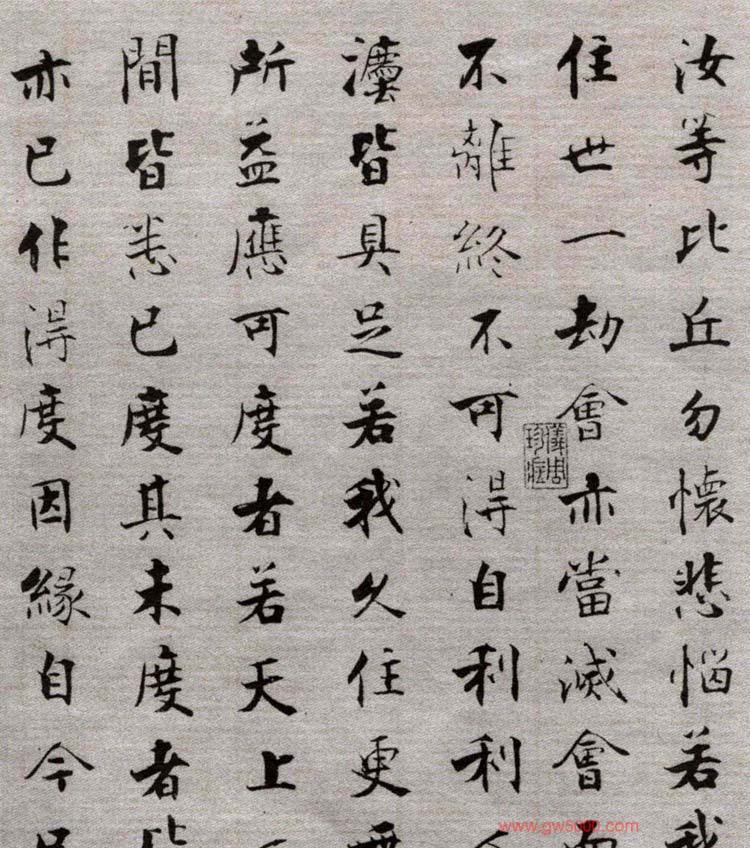 汝等比丘勿懷悲惱若我
住世一劫會亦當滅會
不離終不可得自利利
灋皆具足若我久住更
所益應可度者若天上
間皆悉已度其未度者皆
亦已作得度因緣自今
儀周珍藏
www.gw5000.com